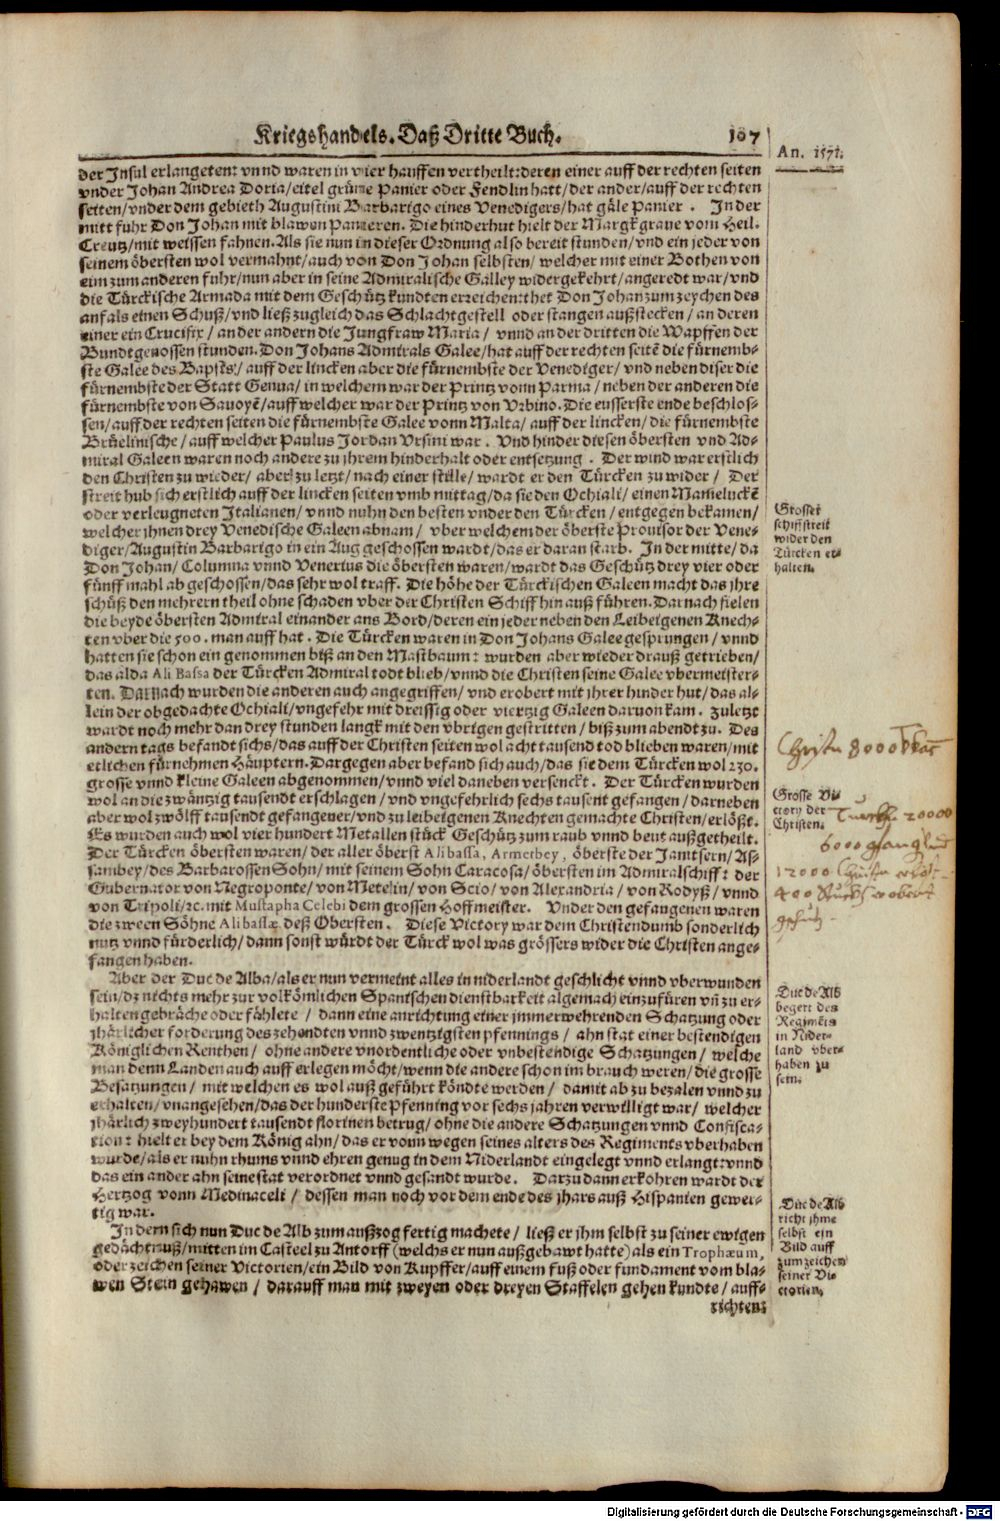 Kriegshandels. Daß Dritte Buch. 107
An. 1571.
der Insul erlangeten: vnnd waren in vier hauffen vertheilt: deren einer auff der rechten seiten
vnder Johan Andrea Doria/ eitel grüne Panier oder Fendlin hatt/ der ander/ auff der rechten
seiten/ vnder dem gebieth Augustini Barbarigo eines Venedigers/ hat gäle Panier . In der
mitt fuhr Don Johan mit blawen Panieren. Die hinderhut hielt der Margkgraue vom Heil.
Creutz/ mit weissen fahnen. Als sie nun in dieser Ordnung also bereit stunden/ vnd ein jeder von
seinem öbersten wol vermahnt/ auch von Don Johan selbsten/ welcher mit einer Bothen von
eim zum anderen fuhr/ nun aber in seine Admiralische Galley widergekehrt/ angeredt war/ vnd
die Türckische Armada mit dem Geschütz kundten erreichen: thet Don Johan zum zeychen des
anfals einen Schuß/ vnd ließ zugleich das Schlachtgestell oder stangen außstecken / an deren
einer ein Crucifix / an der andern die Jungfraw Maria / vnnd an der dritten die Wapffen der
Bundtgenossen stunden. Don Johans Admirals Galee/ hat auff der rechten seitē die fürnemb-
ste Galee des Bapsts/ auff der lincken aber die fürnembste der Venediger/ vnd neben diser die
fürnembste der Statt Genua/ in welchem war der Printz vonn Parma / neben der anderen die
fürnembste von Sauoyē/ auff welcher war der Printz von Vrbino. Die eusserste ende beschlos-
sen/ auff der rechten seiten die fürnembste Galee vonn Malta/ auff der lincken/ die fürnembste
Brüelinische/ auff welcher Paulus Jordan Vrsini war . Vnd hinder diesen öbersten vnd Ad-
miral Galeen waren noch andere zu jhrem hinderhalt oder entsetzung . Der wind war erstlich
den Christen zu wieder/ aber zu letzt/ nach einer stille/ wardt er den Türcken zu wider / Der
streit hub sich erstlich auff der lincken seiten vmb mittag/ da sie den Ochiali/ einen Mamelucke
oder verleugneten Italianen/ vnnd nuhn den besten vnder den Türcken/ entgegen bekamen/
welcher jhnen drey Venedische Galeen abnam/ vber welchem der öberste Prouisor der Vene-
diger/ Augustin Barbarigo in ein Aug geschossen wardt/ das er daran starb. In der mitte/ da
Don Johan/ Columna vnnd Venerius die öbersten waren/ wardt das Geschütz drey vier oder
fünff mahl abgeschossen/ das sehr wol traff. Die höhe der Türckischen Galeen macht das jhre
schüß den mehrern theil ohne schaden vber der Christen Schiff hin auß führen. Darnach fielen
die beyde öbersten Admiral einander ans Bord/ deren ein jeder neben den Leibeigenen Knech-
ten vber die 500. man auff hat . Die Türcken waren in Don Johans Galee gesprungen/ vnnd
hatten sie schon ein genommen biß an den Mastbaum: wurden aber wieder drauß getrieben/
das alda Ali Bassa der Türcken Admiral todt blieb/ vnnd die Christen seine Galee vbermeister-
ten. Darnach wurden die anderen auch angegriffen/ vnd erobert mit jhrer hinder hut/ das al-
lein der obgedachte Ochiali/ vngefehr mit dreissig oder viertzig Galeen daruon kam. zuletzt
wardt noch mehr dan drey stunden langk mit den vbrigen gestritten / biß zum abendt zu. Des
andern tags befandt sichs/ das auff der Christen seiten wol acht tausend tod blieben waren/ mit
etlichen fürnehmen Häuptern. Dargegen aber befand sich auch/ das sie dem Türcken wol 230.
grosse vnnd kleine Galeen abgenommen/ vnnd viel daneben versenckt. Der Türcken wurden
wol an die zwäntzig tausendt erschlagen / vnd vngefehrlich sechs tausent gefangen/ darneben
aber wol zwölff tausendt gefangener/ vnd zu leibeigenen Knechten gemachte Christen/ erlößt.
Es wurden auch wol vier hundert Metallen stück Geschütz zum raub vnnd beut außgetheilt.
Der Türcken öbersten waren/ der aller öberst Alibassa, Armerbey, öberste der Janitsern/ As-
sambey/ des Barbarossen Sohn/ mit seinem Sohn Caracosa/ öbersten im Admiralschiff: der
Gubernator von Negroponte/ von Metelin/ von Scio/ von Alexandria / von Rodyß/ vnnd
von Tripoli/ ꝛc. mit Mustapha Celebi dem grossen Hoffmeister. Vnder den gefangenen waren
die zween Söhne Alibassæ deß Obersten. Diese Victory war dem Christendumb sonderlich
nutz vnnd fürderlich/ dann sonst würdt der Türck wol was grössers wider die Christen ange-
fangen haben.
Grosser
schiffstreit
wider den
Türcken er-
halten.
Christen 8000
Grosse Vi-
ctory der
Christen.
20000
6000 gfangen
12000 Christen erlöst
400 Stuckh erobert
geschütz
Aber der Duc de Alba/ als er nun vermeint alles in niderlandt geschlicht vnnd vberwunden
sein/ dz nichts mehr zur volkömlichen Spanischen dienstbarkeit algemach einzufüren vñ zu er-
halten gebräche oder fählete / dann eine anrichtung einer jmmerwehrenden Schatzung oder
jhärlicher forderung des zehendten vnnd zwentzigsten pfennings / ahn stat einer bestendigen
Königlichen Renthen / ohne andere vnordentliche oder vnbestendige Schatzungen / welche
man denn Landen auch auff erlegen möcht/ wenn die andere schon im brauch weren/ die grosse
Besatzungen / mit welchen es wol auß geführt köndte werden / damit ab zu bezalen vnnd zu
erhalten/ vnangesehen/ das der hunderste Pfenning vor sechs jahren verwilligt war/ welcher
jhärlich zweyhundert tausendt florinen betrug/ ohne die andere Schatzungen vnnd Confisca-
tion: hielt er bey dem König ahn/ das er vonn wegen seines alters des Regiments vberhaben
wurde/ als er nuhn rhums vnnd ehren genug in dem Niderlandt eingelegt vnnd erlangt: vnnd
das ein ander ahn seine stat verordnet vnnd gesandt wurde. Darzu dann erkohren wardt der
Hertzog vonn Medinaceli / dessen man noch vor dem ende des jhars auß Hispanien gewer-
tig war.
Duc de Alb
begert des
Regimēts
in Nider-
land vber-
haben zu
sein.
In dem sich nun Duc de Alb zum außzog fertig machete / ließ er jhm selbst zu seiner ewigen
gedächtnuß/ mitten im Casteel zu Antorff (welchs er nun außgebawt hatte) als ein Trophæum,
oder zeichen seiner Victorien/ ein Bild von Kupffer/ auff einem fuß oder fundament vom bla-
wen Stein gehawen / darauff man mit zweyen oder dreyen Staffelen gehen kundte / auff-
richten:
Duc de Alb
richt jhme
selbst ein
Bild auff
zum zeichen
seiner Vi-
ctorien.
Digitalisierung gefördert durch die Deutsche Forschungsgemeinschaft - DFG